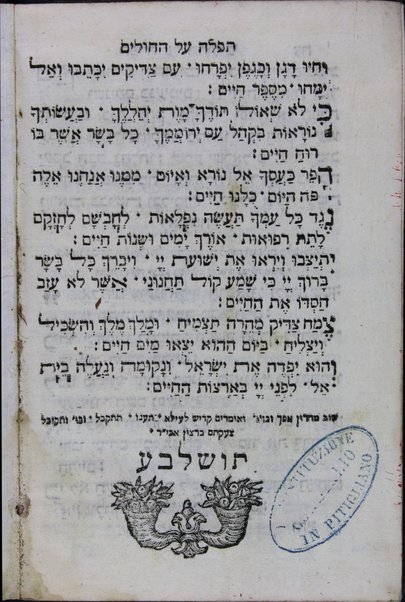 תפלה על החולים
וְחִיּוּ דָגָן וְכַגֶּפֶן יִפְרָחוּ · עִם צַדִּיקִים יִכָּתֵבוּ וְאַל
יִמָּחוּ · מִסֵּפֶר חַיִּים :
כִּי לֹא שְׁאוֹל תּוֹדֶךָּ מָוֶת יְהַלְלֶךָּ · וּבַעֲשׂוֹתְךָ
נוֹרָאוֹת בִּקְהַל עַם יְרוֹמְמֶךָ · כָּל בָּשָׂר אֲשֶׁר בּוֹ
רוּחַ חַיִּים :
הָפֵר כַּעַסְךָ אֵל נוֹרָא וְאָיוֹם · מִמֶּנּוּ אֲנַחְנוּ אֵלֶּה
פֹּה הַיּוֹם · כֻּלָּנוּ חַיִּים :
נֶגֶד כָּל עַמְּךָ תַּעֲשֶׂה נִפְלָאוֹת · לְחָבְשָׁם לְחַזְּקָם
לָתֵת רְפוּאוֹת · אוֹרֶךְ יָמִים וּשְׁנוֹת חַיִּים :
יִתְיַצְּבוּ וְיִרְאוּ אֶת יְשׁוּעַת יְיָ · וִיבָרֵךְ כָּל בָּשָׂר
בָּרוּךְ יְיָ כִּי שָׁמַע קוֹל תַּחֲנוּנַי · אֲשֶׁר לֹא עָזַב
חַסְדּוֹ אֶת הַחַיִּים :
צֶמַח צַדִּיק מְהֵרָה תַצְמִיחַ · וּמָלַךְ מֶלֶךְ וְהִשְׂכִּיל
וְיַצְלִיחַ · בַּיּוֹם הַהוּא יֵצְאוּ מַיִם חַיִּים :
וְהוּא יִפְדֶּה אֶת יִשְׂרָאֵל · וְנָקוּמָה וְנַעֲלֶה בֵּית
אֵל · לִפְנֵי יְיָ בְּאַרְצוֹת הַחַיִּים :
שוב מחרון אפך וכו׳ · ואומרים קדיש לעילא · יתענו · תתקבל · וכו׳ ותקובל
צעקתם ברצון אכי״ר ·
תושלבע
ISTITUZIONE
IN PITIGLIANO